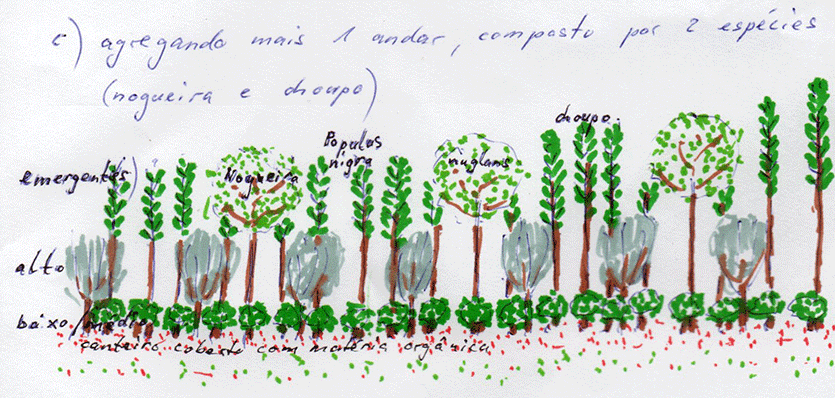 c) agregando mais 1 andar, composto por 2 espécies
(nogueira e choupo)
choupo.
Populus
nigra
juglans
Nogueira
emergentes)
alto
baixo/médio
canteiro coberto com matéria orgânica